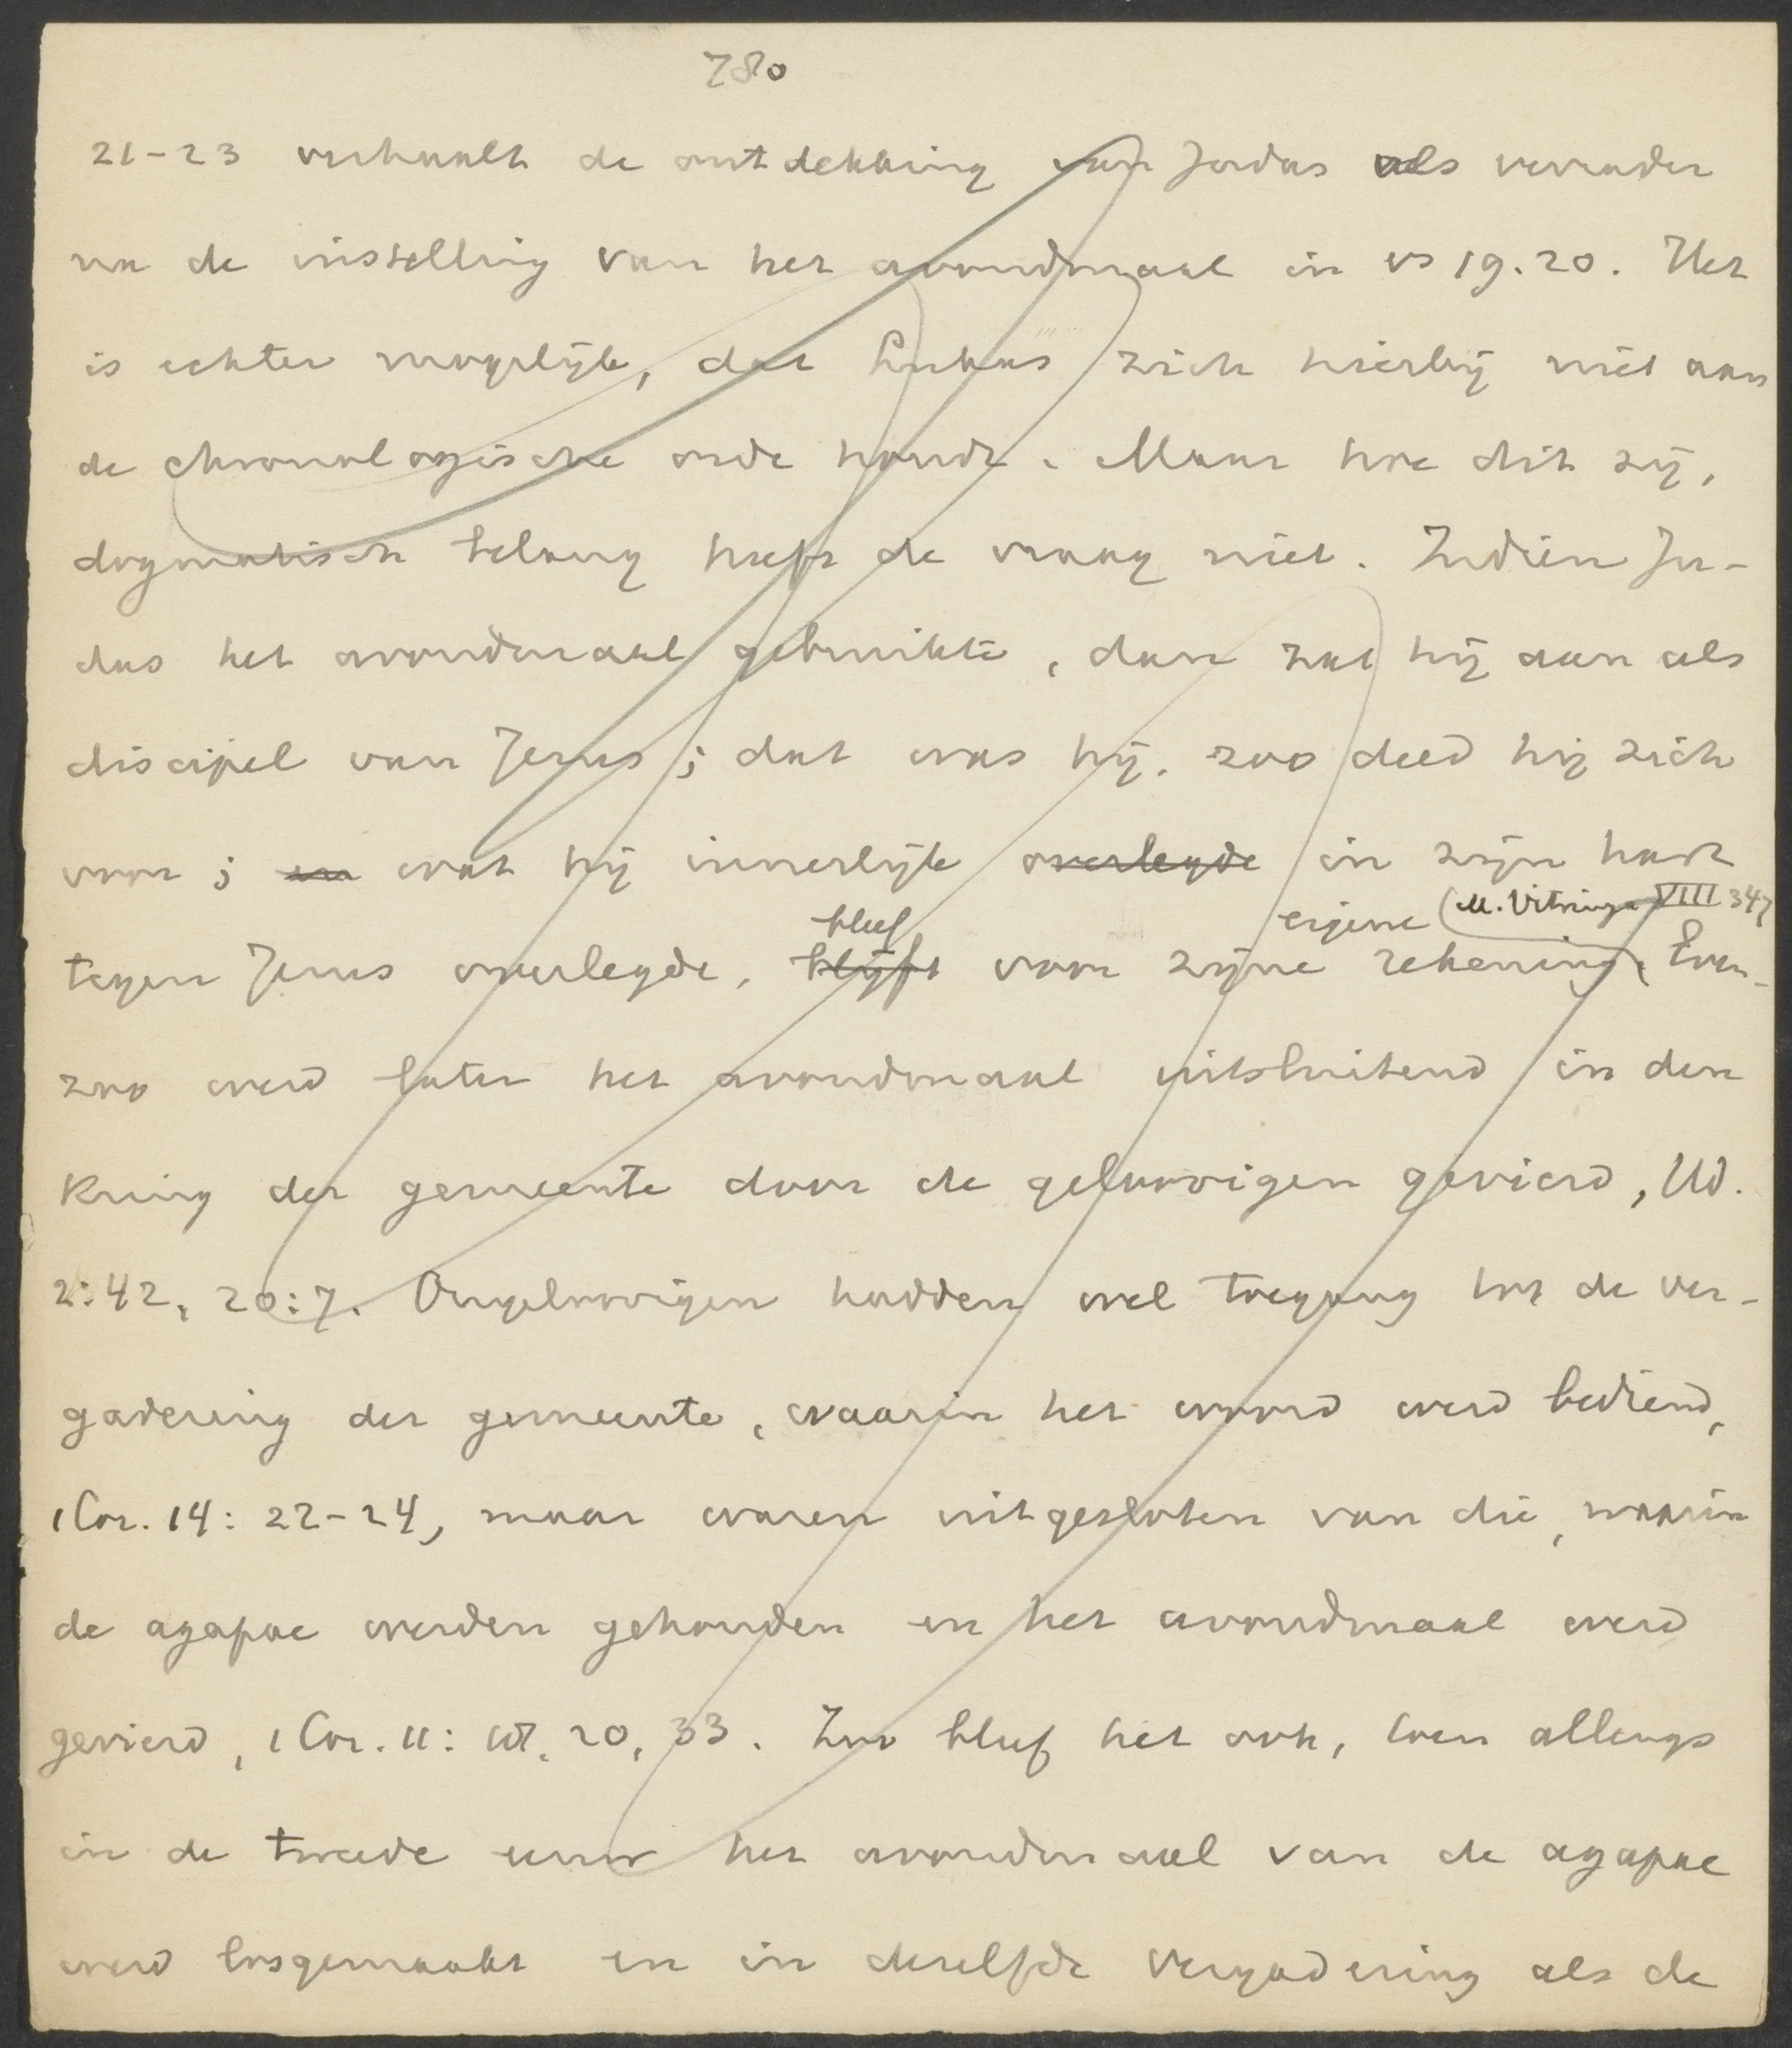 780
21-23 verhaalt de ontdekking van Judas als verrader
na de instelling van het avondmaal in vs 19.20. Het
is echter mogelijk, dat Lukas zich hierbij niet aan
de chronologische orde houdt. Maar hoe dit zij,
dogmatisch belang heeft de vraag niet. Indien Ju-
das het avondmaal gebruikte, dan zat hij aan als
discipel van Jezus; dat was hij, zoo deed hij zich
voor; en wat hij innerlijk overlegde in zijn hart
bleef eigene (M. Vitringa VIII 347
tegen Jezus overlegde, blijft voor zijne rekening. Even-
zoo werd later het avondmaal uitsluitend in den
kring der gemeente door de geloovigen gevierd, Hd.
2:42, 20:7. Ongeloovigen hadden wel toegang tot de ver-
gadering der gemeente, waarin het woord werd bediend,
1 Cor. 14: 22-24, maar waren uitgesloten van die, waarin
de agapae werden gehouden en het avondmaal werd
gevierd, 1 Cor. 11: 18, 20, 33. Zoo bleef het ook, toen allengs
in de tweede eeuw het avondmaal van de agapae
werd losgemaakt en in dezelfde vergadering als de